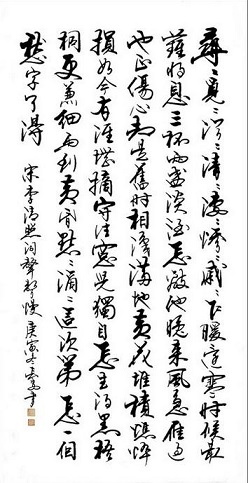 尋〻覓〻冷〻清〻凄〻慘〻戚〻乍暖還寒時候最
難將息三杯兩盞淡酒怎敵他晚來風急雁過
也正傷心却是舊時相識滿地黃花堆積憔悴
損如今有誰堪摘守着窗兒獨自怎生得黑梧
桐更兼細雨到黃昏點〻滴〻這次第怎一個
愁字了得
宋李清照詞聲聲慢庚寅冬書